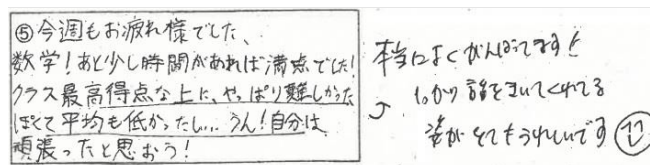 ⑤今週もお疲れ様でした、
数学！あと少し時間があれば満点でした！
クラス最高得点な上に、やっぱり難しかった
ぽくて平均も低かったし...うん！自分は
頑張ったと思おう！
本当によくがんばってます！
しっかり話をきいてくれてる
姿がとてもうれしいです